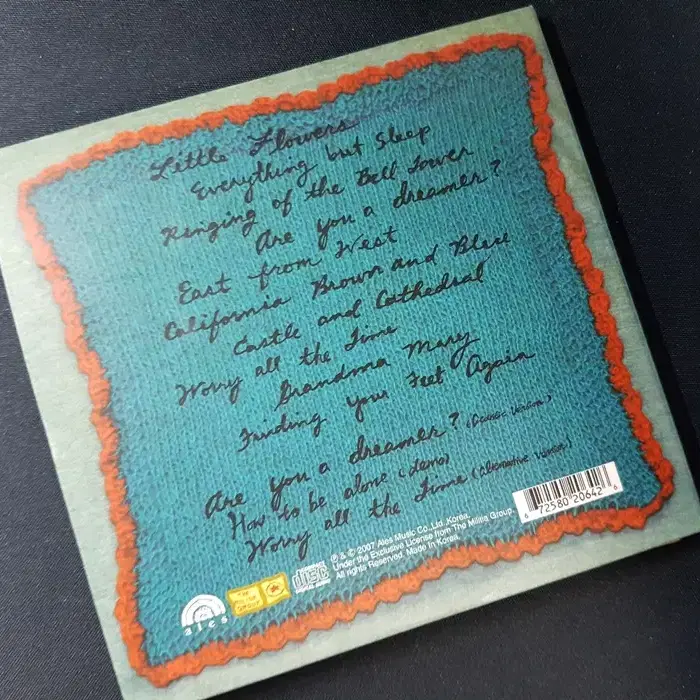 Little Flowers
Everything but Sleep
Ringing of the Bell Tower
Are you a dreamer?
East from West
California Brown and Blue
Castle and Cathedral
Worry all the Time
Grandma Mary
Finding your Feet Again
Are you a dreamer? (Acoustic Version)
How to be alone (demo)
Worry all the Time (Alternative Version)
6 72580 20642 6
℗ & © 2007 Ales Music Co.,Ltd.,Korea.
Under the Exclusive License from The Militia Group.
All rights Reserved. Made In Korea.
ales
THE MILITIA GROUP
COMPACT disc DIGITAL AUDIO